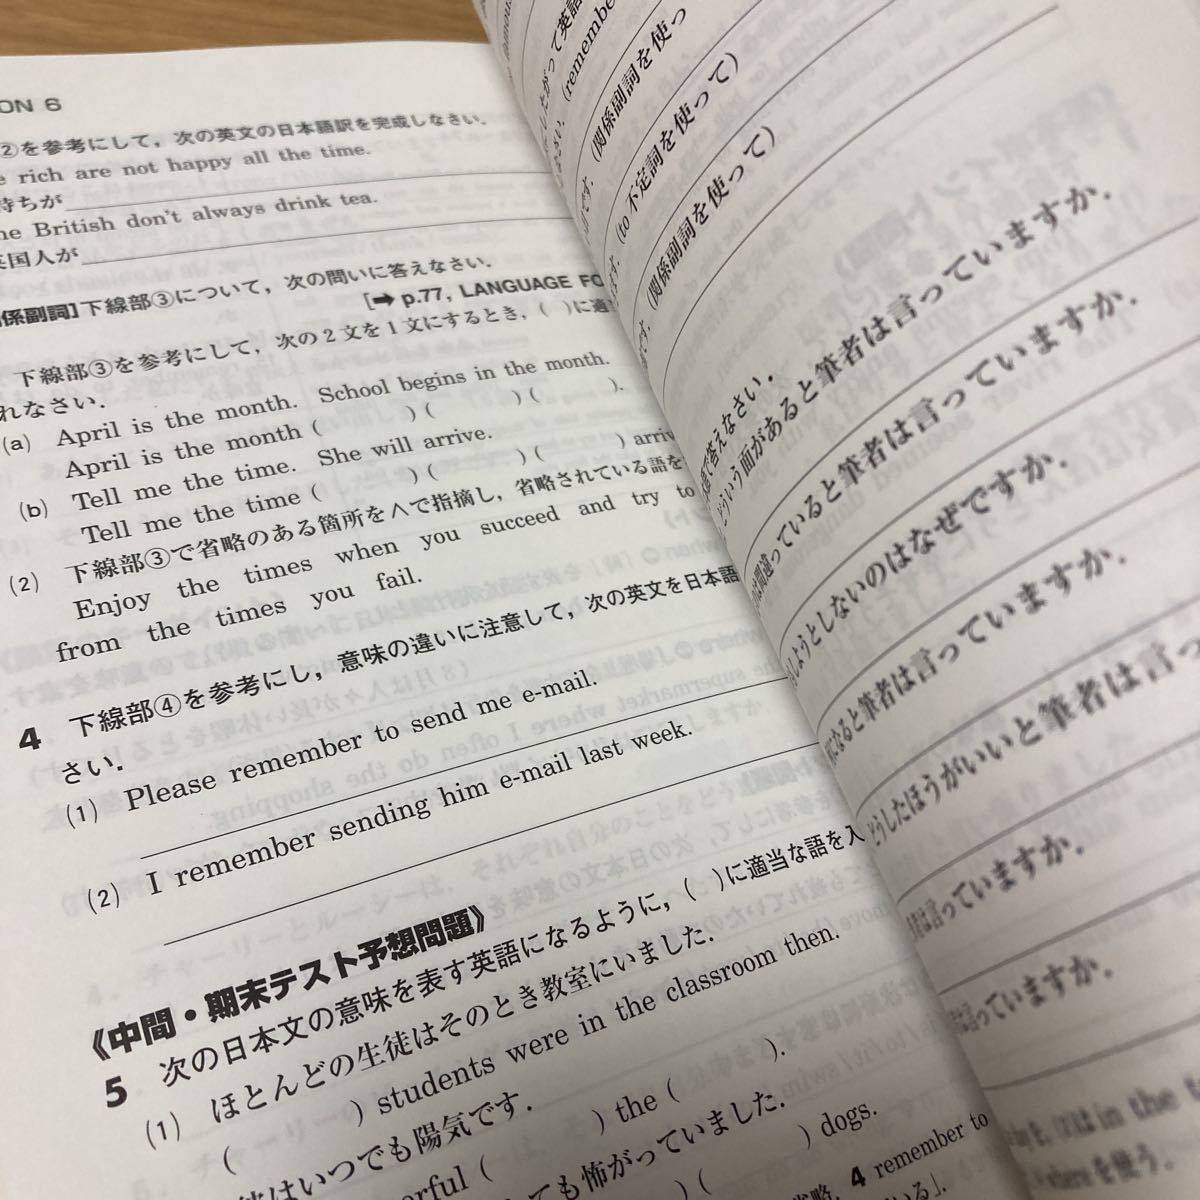 ON 6
②を参考にして，次の英文の日本語訳を完成しなさい．
rich are not happy all the time.
持ちが
British don't always drink tea.
英国人が
係副詞]下線部③について，次の問いに答えなさい．
[➡ p.77, LANGUAGE FO
下線部③を参考にして，次の2文を1文にするとき，( )に適
れなさい．
(a) April is the month. School begins in the month.
April is the month ( ) ( ) ( ).
(b) Tell me the time. She will arrive.
Tell me the time ( ) ( ) ( ) arriv
(2) 下線部③で省略のある箇所を∧で指摘し，省略されている語を
Enjoy the times when you succeed and try to
from the times you fail.
4 下線部④を参考にし，意味の違いに注意して，次の英文を日本語
さい．
(1) Please remember to send me e-mail.
(2) I remember sending him e-mail last week.
《中間・期末テスト予想問題》
5 次の日本文の意味を表す英語になるように，( )に適当な語を入
(1) ほとんどの生徒はそのとき教室にいました．
( ) students were in the classroom then.
はいつでも陽気です．
erful ( ) the ( ).
ても怖がっていました．
) dogs.
4 remember to
したがって英語
(remember
(関係副詞を使っ
(to不定詞を使って)
(関係副詞を使って)
で答えなさい．
どういう面があると筆者は言っていますか．
は間違っていると筆者は言っていますか．
しようとしないのはなぜですか．
になると筆者は言っていますか．
どうしたほうがいいと筆者は言っ
は言っていますか．
言っていますか．
in the
を使う．